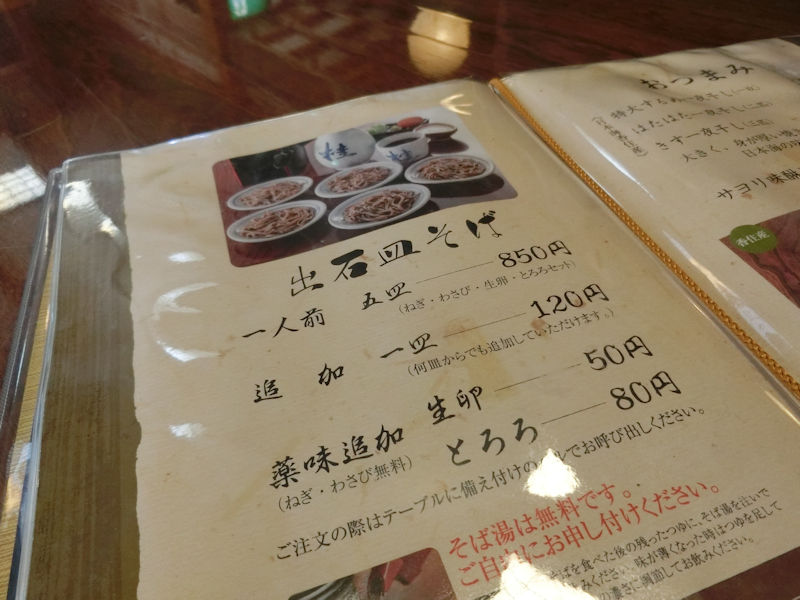 桂
出石皿そば
一人前 五皿 850円
(ねぎ・わさび・生卵・とろろセット)
追加 一皿 120円
(何皿からでも追加していただけます。)
薬味追加 生卵 50円
(ねぎ・わさび無料) とろろ 80円
ご注文の際はテーブルに備え付けの ルでお呼び出しください。
そば湯は無料です。
ご自由にお申し付けください。
ばを食べた後の残ったつゆに、そば湯を注いで
みください。味が薄くなった時はつゆを足して
の濃さに調節してお飲みください。
おつまみ
特大するめ一夜干し(一枚)
はたはた一夜干し
さす一夜干し
大きく、身が厚い
日本海の
サヨリ味醂
香住産